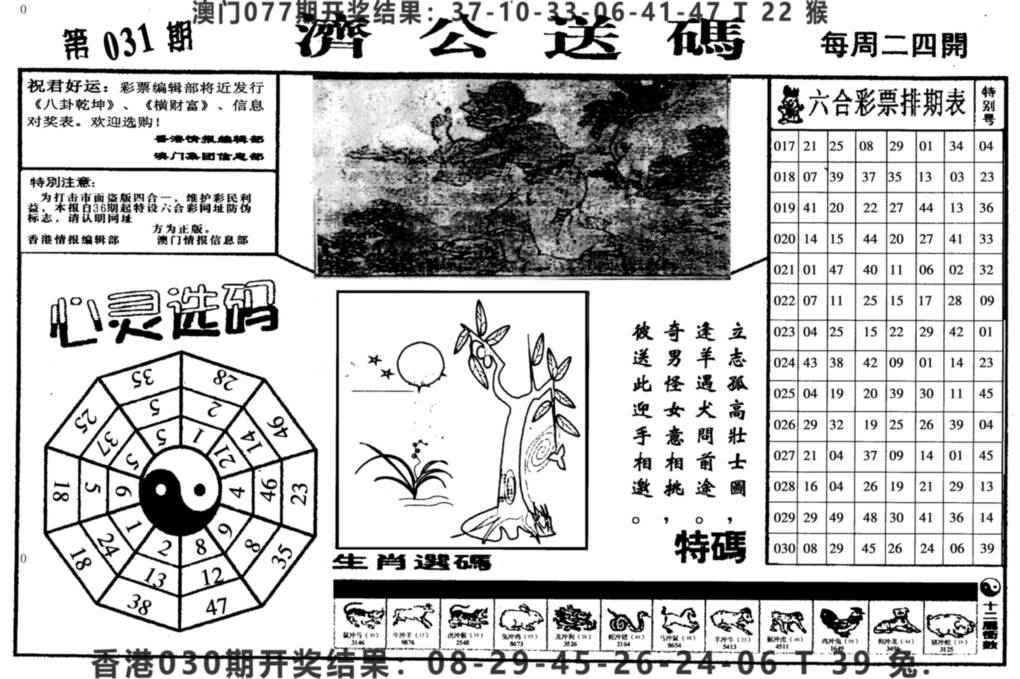 澳门077期开奖结果：37-10-33-06-41-47 T 22 猴
第 031 期
濟公送碼
每周二四開
祝君好运：彩票编辑部将近发行
《八卦乾坤》、《横财富》、信息
对奖表。欢迎选购！
香港情报编辑部
澳门集团信息部
特别注意：
为打击市面盗版四合一，维护彩民利
益，本报自36期起特设六合彩网址防伪
标志，请认明网址
方为正版。
香港情报编辑部 澳门情报信息部
六合彩票排期表 特别号
017 21 25 08 29 01 34 04
018 07 39 37 35 13 03 23
019 41 20 22 27 44 13 36
020 14 15 44 20 27 41 33
021 01 47 40 11 06 02 32
022 07 11 25 15 17 28 09
023 04 25 15 22 29 42 01
024 43 38 42 09 01 14 23
025 04 19 20 39 30 11 45
026 29 32 19 25 26 39 04
027 21 04 37 09 14 01 45
028 16 04 26 19 21 29 13
029 29 49 48 30 41 36 14
030 08 29 45 26 24 06 39
心灵选码
35 28
25 5 2 46
37 5 1 14
5 21
18 5 6 4 46 23
1 9
18 24 2 8 8 35
13 12
38 47
立志孤高壯士圖，
逢羊遇犬問前途。
奇男怪女意相挑，
彼送此迎手相邀。
特碼
生肖選碼
鼠冲马 牛冲羊 虎冲猴 兔冲鸡 龙冲狗 蛇冲猪 马冲鼠 羊冲牛 猴冲虎 鸡冲兔 狗冲龙 猪冲蛇
3146 9876 2548 8673 3526 2164 8654 5413 4511 1649 3125
香港030期开奖结果：08-29-45-26-24-06 T 39 兔.